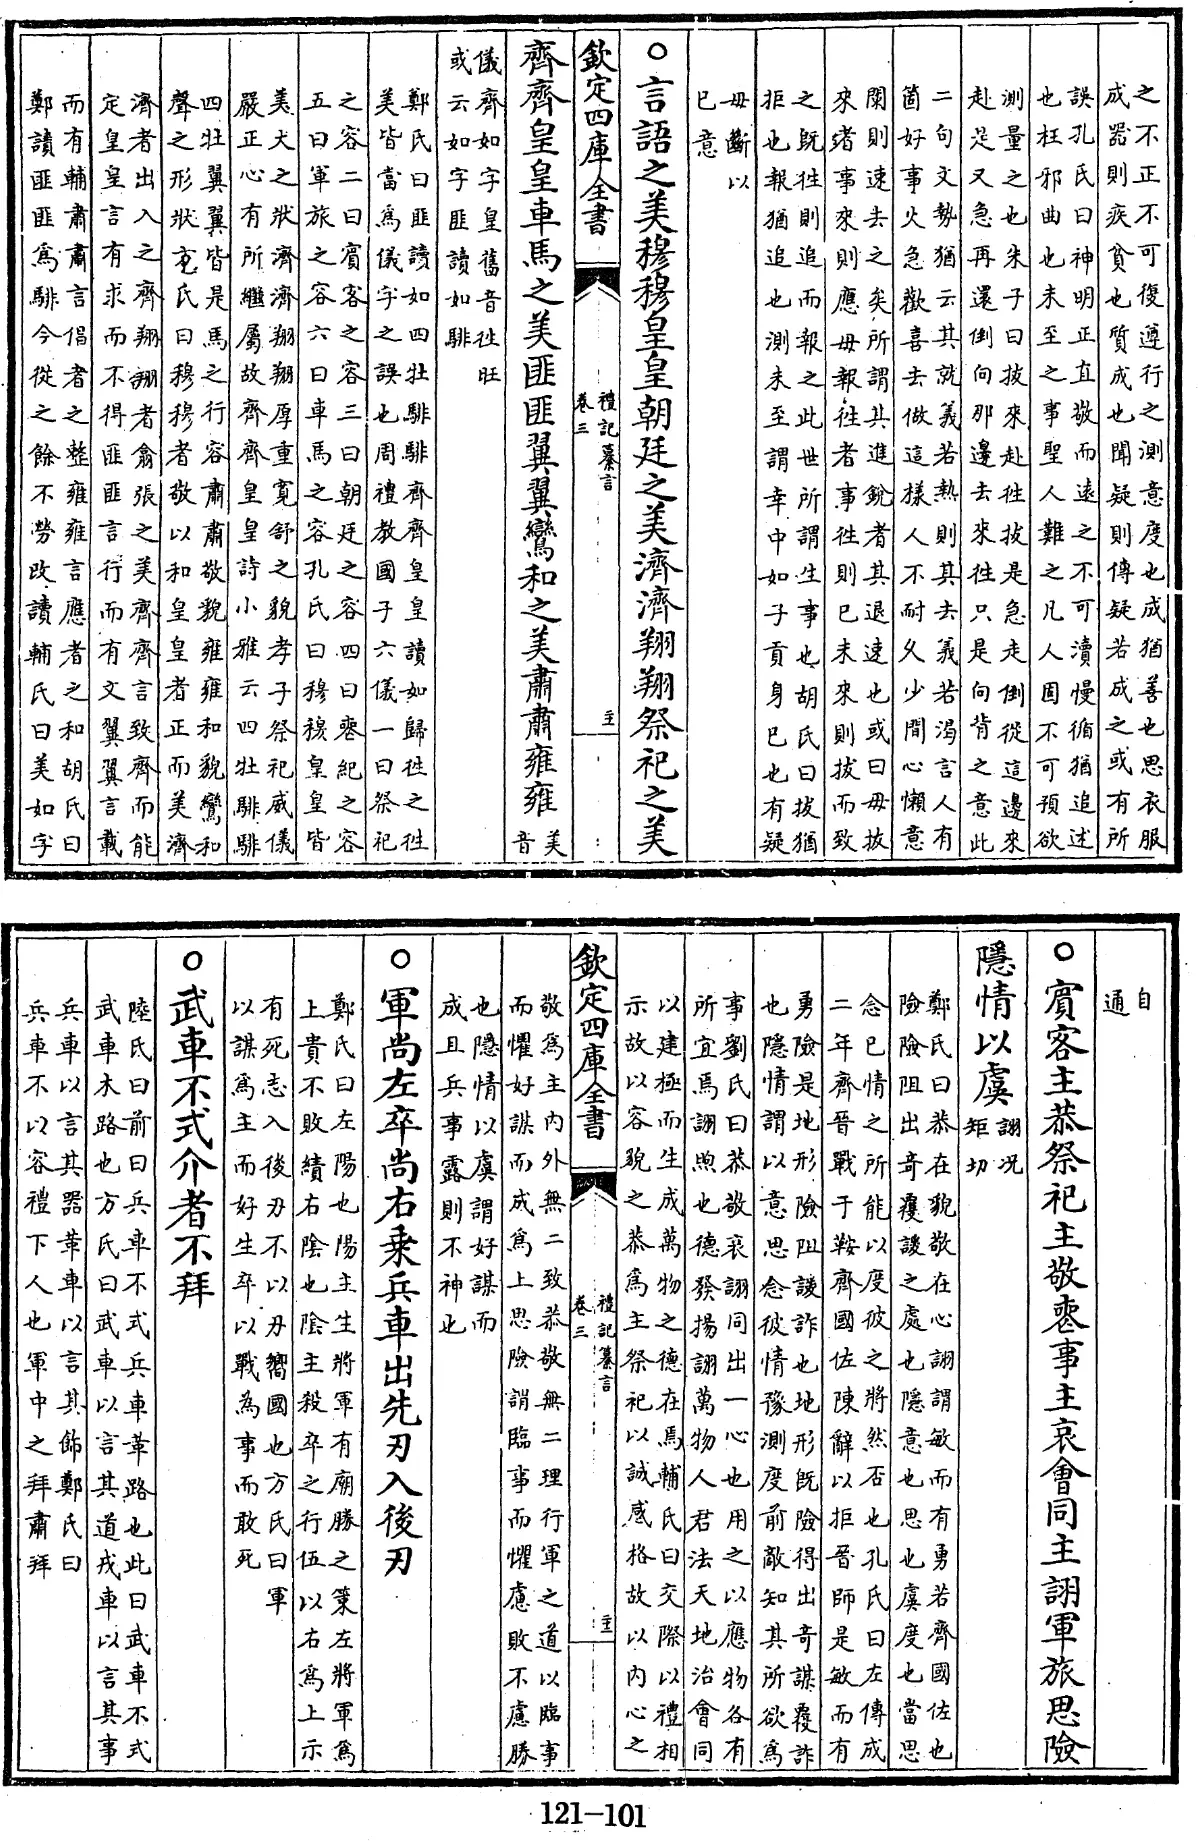 之不正不可復遵行之測意度也成猶善也思衣服
成器則疾貧也質成也聞疑則傳疑若成之或有所
誤孔氏曰神明正直敬而遠之不可瀆慢循猶追述
也枉邪曲也未至之事聖人難之凡人固不可預欲
測量之也朱子曰拔來赴往拔是急走倒從這邊來
赴是又急再還倒向那邊去來往只是向背之意此
二句文勢猶云其就義若熱則其去義若渴言人有
箇好事火急歡喜去做這様人不耐久少間心懶意
闌則速去之矣所謂其進銳者其退速也或曰毋拔
來者事來則應毋報往者事往則已未來則拔而致
之既往則追而報之此世所謂生事也胡氏曰拔猶
拒也報猶追也測未至謂幸中如子貢身已也有疑
毋斷以
已意
○言語之美穆穆皇皇朝廷之美濟濟翔翔祭祀之美
欽定四庫全書
禮記纂言
卷三
齊齊皇皇車馬之美匪匪翼翼鸞和之美肅肅雍雍美音
儀齊如字皇舊音往旺
或云如字匪讀如騑
鄭氏曰匪讀如四牡騑騑齊齊皇皇讀如歸往之往
美皆當為儀字之誤也周禮教國子六儀一曰祭祀
之容二曰賓客之容三曰朝廷之容四曰喪紀之容
五曰軍旅之容六曰車馬之容孔氏曰穆穆皇皇皆
美大之狀濟濟翔翔厚重寛舒之貌孝子祭祀威儀
嚴正心有所繼屬故齊齊皇皇詩小雅云四牡騑騑
四牡翼翼皆是馬之行容肅肅敬貌雍雍和貌鸞和
聲之形狀方氏曰穆穆者敬以和皇皇者正而美濟
濟者出入之齊翔翔者翕張之美齊齊言致齊而能
定皇皇言有求而不得匪匪言行而有文翼翼言載
而有輔肅肅言倡者之整雍雍言應者之和胡氏曰
鄭讀匪匪為騑今從之餘不勞改讀輔氏曰美如字
自
通
○賓客主恭祭祀主敬喪事主哀會同主詡軍旅思險
隱情以虞詡况矩切
鄭氏曰恭在貌敬在心詡謂敏而有勇若齊國佐也
險險阻出竒覆諼之處也隱意也思也虞度也當思
念已情之所能以度彼之將然否也孔氏曰左傳成
二年齊晉戰于鞍齊國佐陳辭以拒晉師是敏而有
勇險是地形險阻諼詐也地形既險得出竒謀覆詐
也隱情謂以意思念彼情豫測度前敵知其所欲為
事劉氏曰恭敬哀詡同出一心也用之以應物各有
所宜焉詡煦也德發揚詡萬物人君法天地治會同
以建極而生成萬物之德在焉輔氏曰交際以禮相
示故以容貌之恭為主祭祀以誠感格故以内心之
欽定四庫全書
禮記纂言
卷三
敬為主内外無二致恭敬無二理行軍之道以臨事
而懼好謀而成為上思險謂臨事而懼慮敗不慮勝
也隱情以虞謂好謀而
成且兵事露則不神也
○軍尚左卒尚右乗兵車出先刃入後刃
鄭氏曰左陽也陽主生將軍有廟勝之策左將軍為
上貴不敗績右陰也陰主殺卒之行伍以右為上示
有死志入後刃不以刃嚮國也方氏曰軍
以謀為主而好生卒以戰為事而敢死
○武車不式介者不拜
陸氏曰前曰兵車不式兵車革路也此曰武車不式
武車木路也方氏曰武車以言其道戎車以言其事
兵車以言其器革車以言其飾鄭氏曰
兵車不以容禮下人也軍中之拜肅拜
121-101